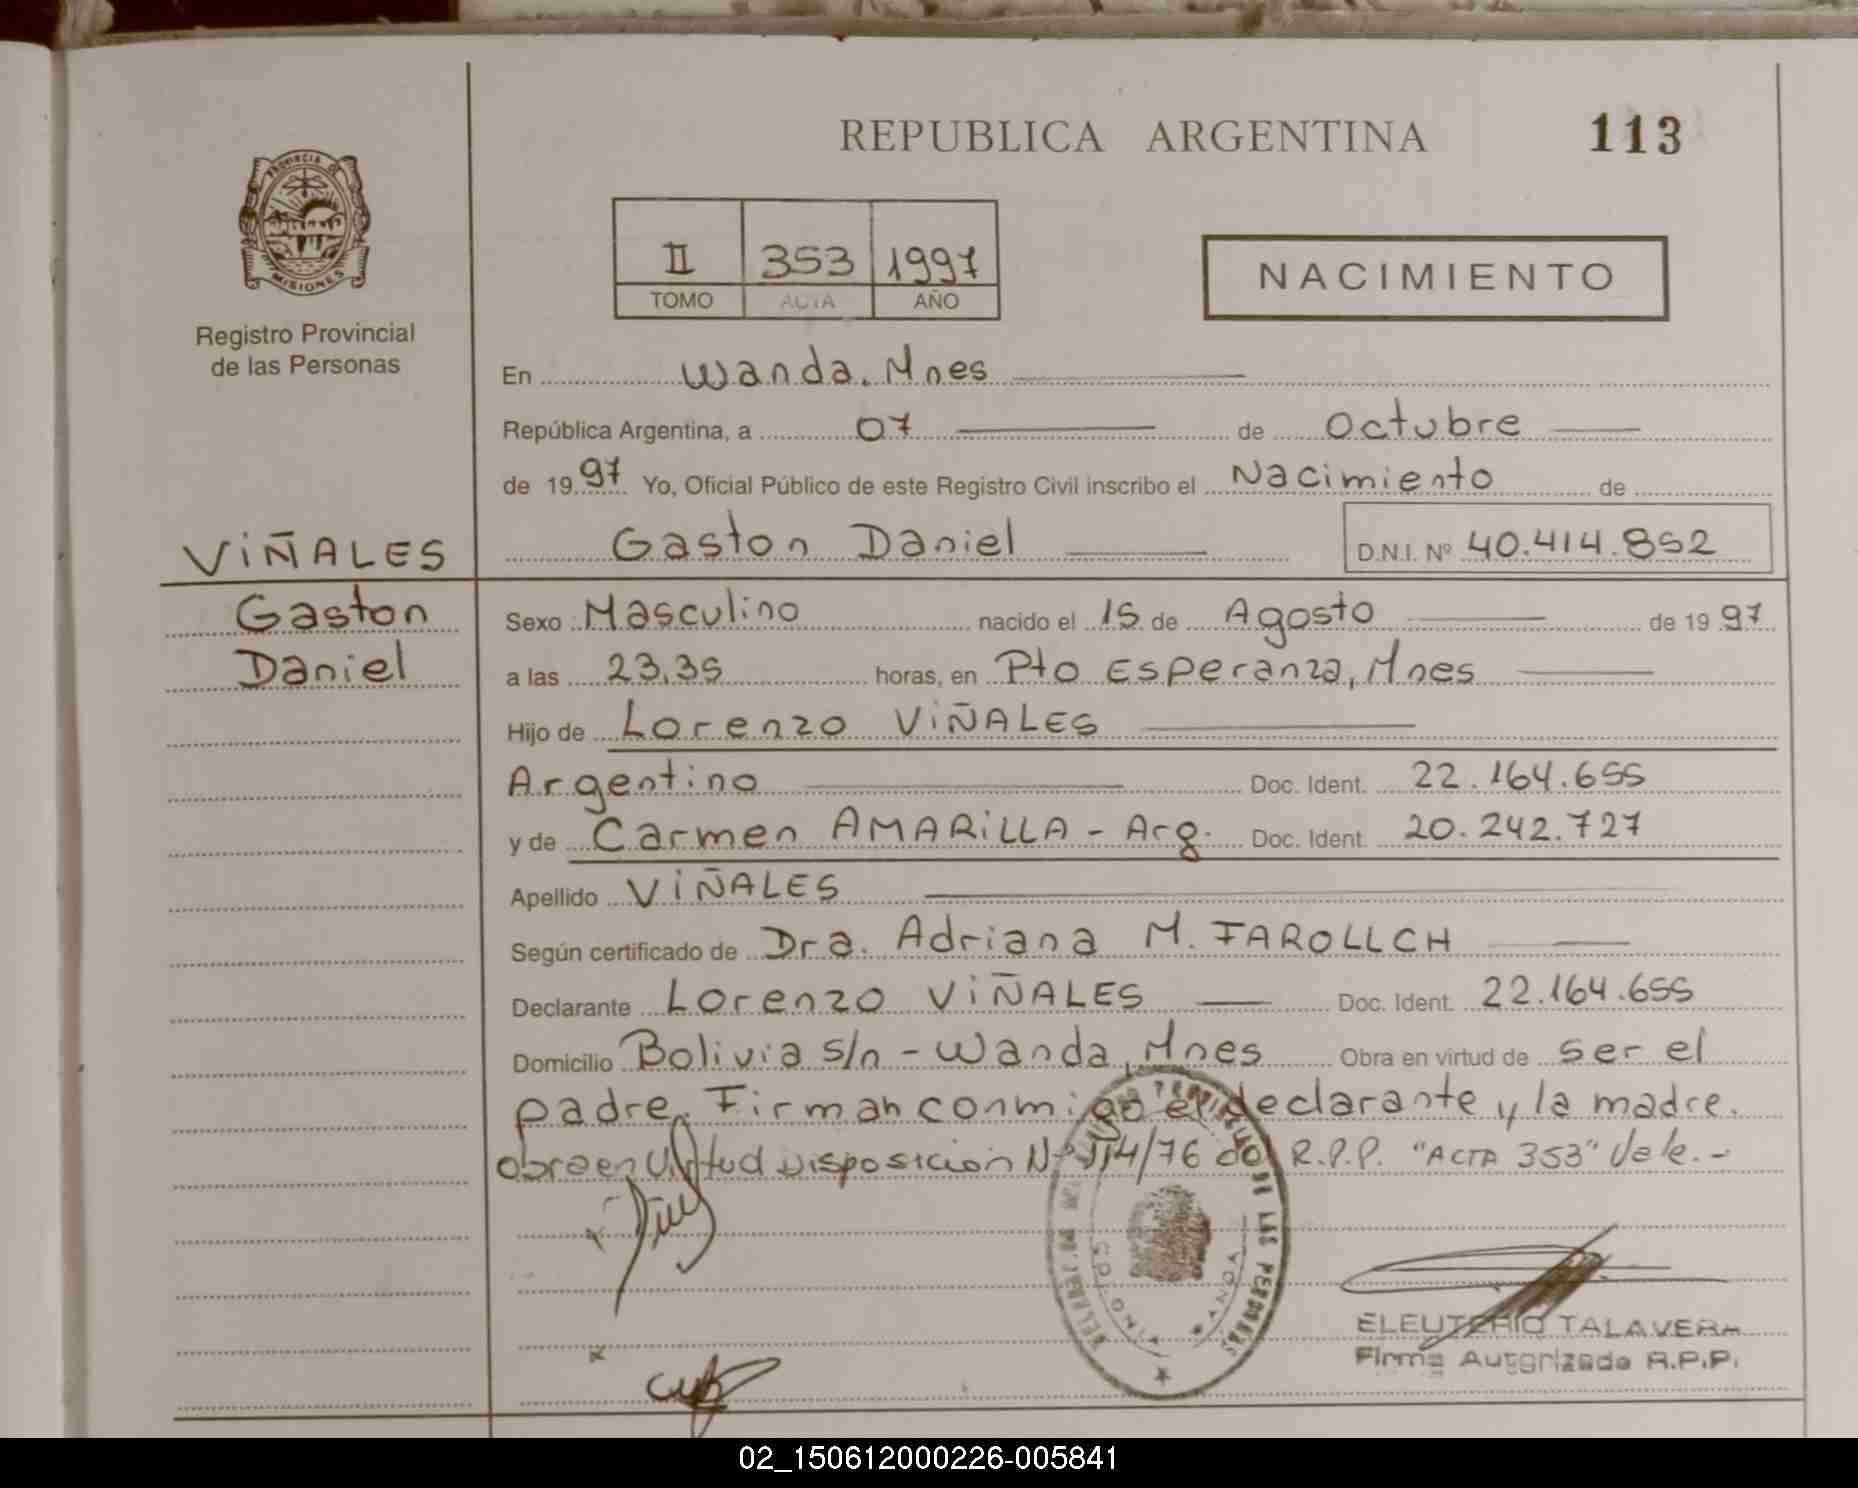 REPUBLICA ARGENTINA 113
PROVINCIA DE MISIONES
Registro Provincial
de las Personas
II 353 1997
TOMO ACTA AÑO
NACIMIENTO
En Wanda, Mnes
República Argentina, a 07 de Octubre
de 1997 Yo, Oficial Público de este Registro Civil inscribo el Nacimiento de
Gaston Daniel D.N.I. Nº 40.414.852
VIÑALES
Gaston
Daniel
Sexo Masculino nacido el 15 de Agosto de 1997
a las 23,35 horas, en Pto Esperanza, Mnes
Hijo de Lorenzo VIÑALES
Argentino Doc. Ident. 22.164.655
y de Carmen AMARILLA - Arg. Doc. Ident. 20.242.727
Apellido VIÑALES
Según certificado de Dra. Adriana M. FAROLLCH
Declarante Lorenzo VIÑALES Doc. Ident. 22.164.655
Domicilio Bolivia s/n - Wanda, Mnes Obra en virtud de ser el
padre. Firman conmigo el declarante y la madre.
obra en virtud Disposicion Nº 114/76 del R.P.P. "ACTA 353" Vale.-
DE LAS PERSONAS
WANDA
ELEUTERIO TALAVERA
Firma Autorizada R.P.P.
02_150612000226-005841